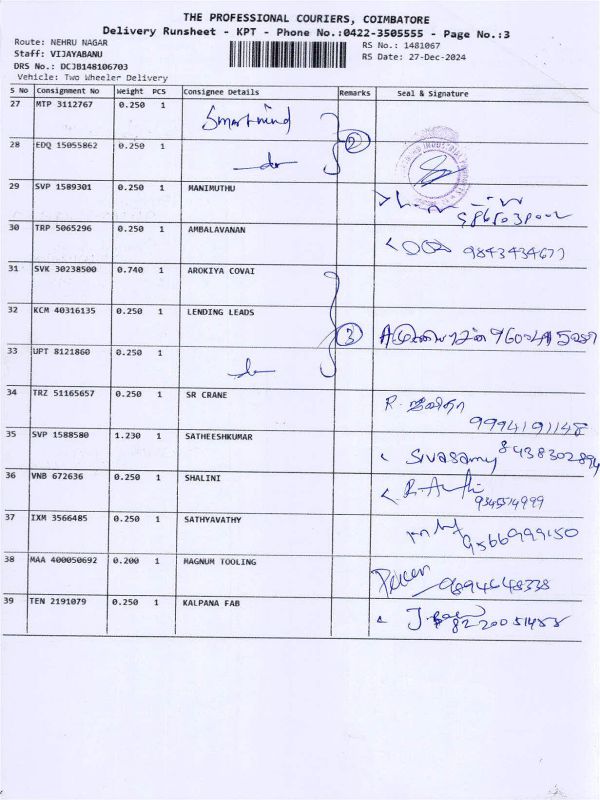 THE PROFESSIONAL COURIERS, COIMBATORE
Delivery Runsheet - KPT - Phone No.:0422-3505555 - Page No.:3
Route: NEHRU NAGAR RS No.: 1481067
Staff: VIJAYABANU RS Date: 27-Dec-2024
DRS No.: DCJB148106703
Vehicle: Two Wheeler Delivery
S No Consignment No Weight PCS Consignee Details Remarks Seal & Signature
27 MTP 3112767 0.250 1 Smartmind
28 EDQ 15055862 0.250 1 -do- 2
29 SVP 1589301 0.250 1 MANIMUTHU
30 TRP 5065296 0.250 1 AMBALAVANAN 9843434677
31 SVK 30238500 0.740 1 AROKIYA COVAI
32 KCM 40316135 0.250 1 LENDING LEADS 3
33 UPT 8121860 0.250 1 -do-
34 TRZ 51165657 0.250 1 SR CRANE R. 9994191148
35 SVP 1588580 1.230 1 SATHEESHKUMAR Sivasamy 8438302894
36 VNB 672636 0.250 1 SHALINI 9345574999
37 IXM 3566485 0.250 1 SATHYAVATHY 9566999150
38 MAA 400050692 0.200 1 MAGNUM TOOLING 9894648338
39 TEN 2191079 0.250 1 KALPANA FAB